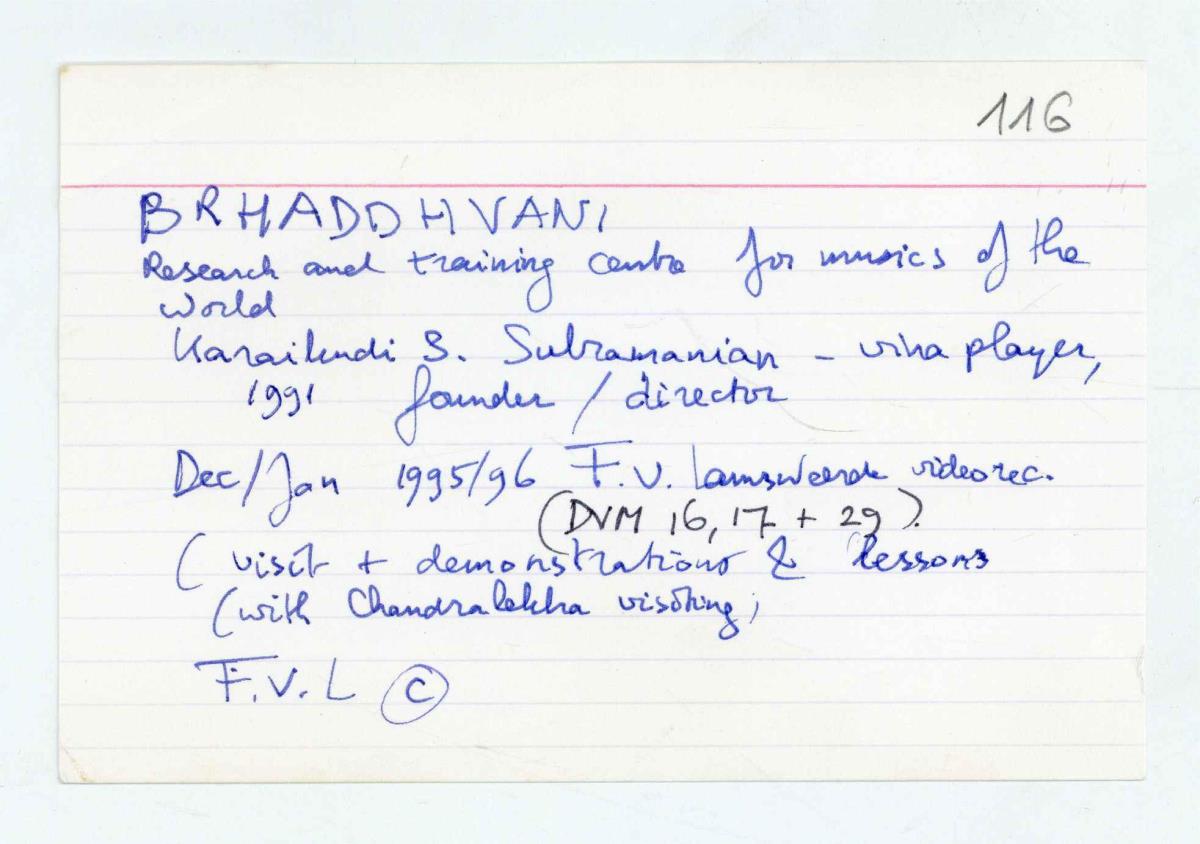 116
BRHADDHVANI
Research and training centre for musics of the
world
Karaikudi S. Subramanian – vina player,
1991 founder / director
Dec/Jan 1995/96 F.V. Lamsweerde videorec.
(DVM 16, 17 + 29).
( visit + demonstrations & lessons
(with Chandralekha visiting;
F.V.L ©